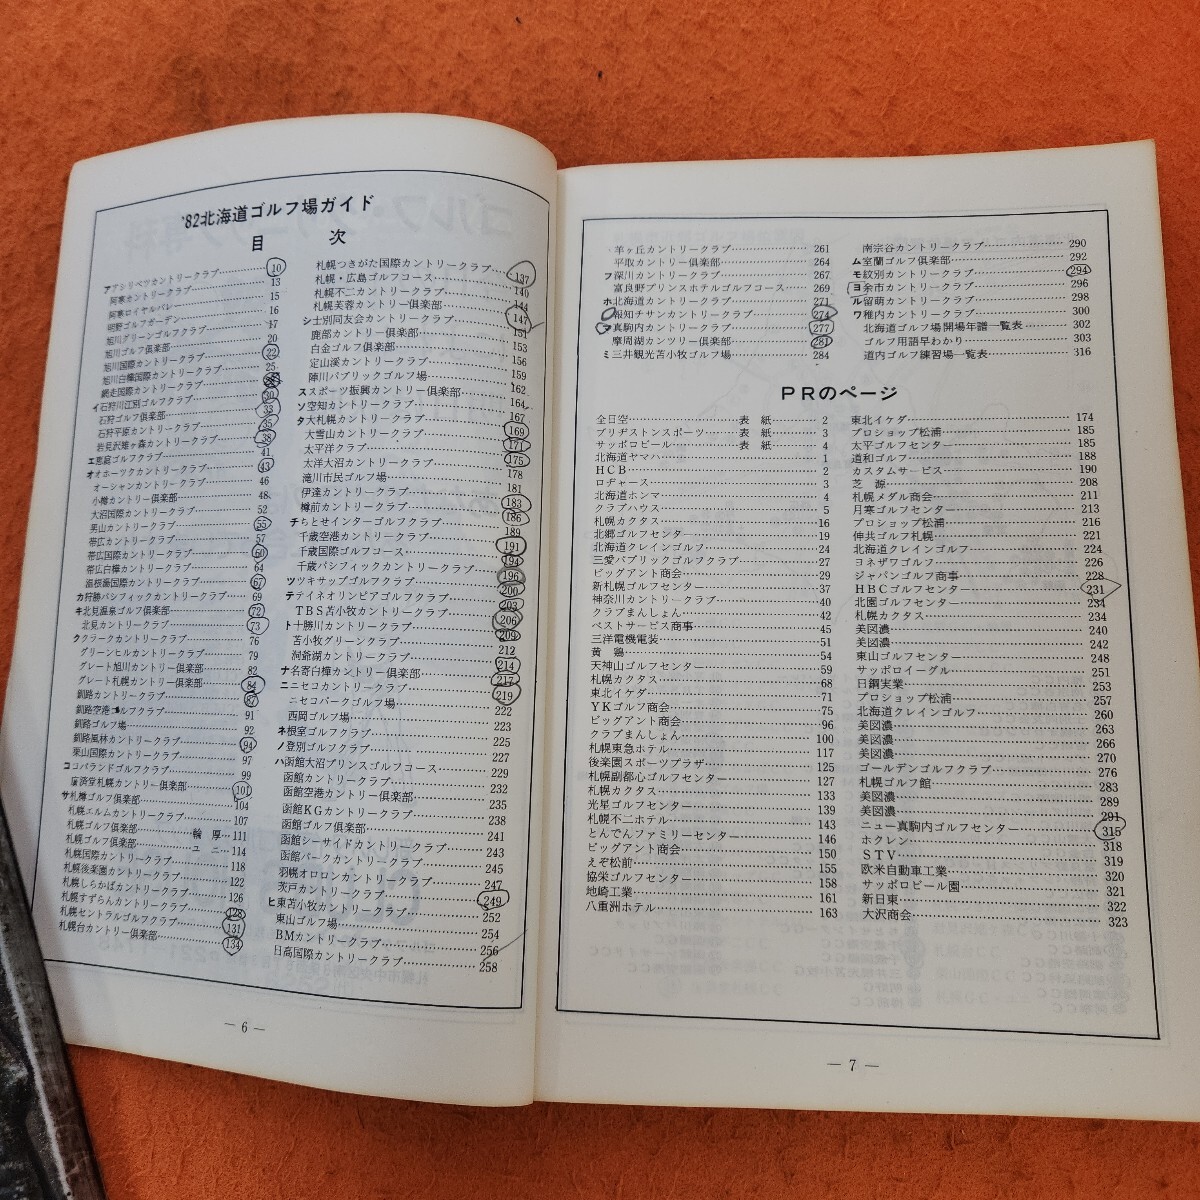 '82北海道ゴルフ場ガイド
目　次
アアシリベツカントリークラブ 10
阿寒カントリークラブ 13
阿寒ロイヤルバレー 15
明野ゴルフガーデン 16
旭川グリーンゴルフクラブ 17
旭川ゴルフ倶楽部 20
旭川国際カントリークラブ 22
旭川白樺国際カントリークラブ 25
網走国際カントリークラブ
イ石狩川江別ゴルフクラブ 30
石狩ゴルフ倶楽部 33
石狩平原カントリークラブ 35
岩見沢雉ヶ森カントリークラブ 38
エ恵庭ゴルフクラブ 41
オオホーツクカントリークラブ 43
オーシャンカントリークラブ 46
小樽カントリー倶楽部 48
大沼国際カントリークラブ 52
男山カントリークラブ 55
帯広カントリークラブ 57
帯広国際カントリークラブ 60
帯広白樺カントリークラブ 64
温根湯国際カントリークラブ 67
カ狩勝パシフィックカントリークラブ 69
キ北見温泉ゴルフ倶楽部 72
北見カントリークラブ 73
ククラークカントリークラブ 76
グリーンヒルカントリークラブ 79
グレート旭川カントリー倶楽部 82
グレート札幌カントリー倶楽部 84
釧路カントリークラブ 87
釧路空港ゴルフクラブ 91
釧路ゴルフ場 92
釧路風林カントリークラブ 94
栗山国際カントリークラブ 97
ココパランドゴルフクラブ 99
廣済堂札幌カントリー倶楽部 101
サ札樽ゴルフ倶楽部 104
札幌エルムカントリークラブ 107
札幌ゴルフ倶楽部 輪厚 111
札幌ゴルフ倶楽部 ユニ 114
札幌国際カントリークラブ 118
札幌後楽園カントリークラブ 122
札幌しらかばカントリークラブ 126
札幌すずらんカントリークラブ 128
札幌セントラルゴルフクラブ 131
札幌台カントリー倶楽部 134
札幌つきがた国際カントリークラブ 137
札幌・広島ゴルフコース 140
札幌不二カントリークラブ 144
札幌芙蓉カントリー倶楽部 147
シ士別同友会カントリークラブ 151
鹿部カントリー倶楽部 153
白金ゴルフ倶楽部 156
定山渓カントリークラブ 159
陣川パブリックゴルフ場 162
ススポーツ振興カントリー倶楽部 164
ソ空知カントリークラブ 167
タ大札幌カントリークラブ 169
大雪山カントリークラブ 171
太平洋クラブ 175
太洋大沼カントリークラブ 178
滝川市民ゴルフ場 181
伊達カントリークラブ 183
樽前カントリークラブ 186
チちとせインターゴルフクラブ 189
千歳空港カントリークラブ 191
千歳国際ゴルフコース 194
千歳パシフィックカントリークラブ 196
ツツキサップゴルフクラブ 200
テテイネオリンピアゴルフクラブ 203
TBS苫小牧カントリークラブ 206
ト十勝川カントリークラブ 209
苫小牧グリーンクラブ 212
洞爺湖カントリークラブ 214
ナ名寄白樺カントリークラブ 217
ニニセコカントリークラブ 219
ニセコパークゴルフ場 222
西岡ゴルフ場 223
ネ根室ゴルフクラブ 225
ノ登別ゴルフクラブ 227
ハ函館大沼プリンスゴルフコース 229
函館カントリークラブ 232
函館空港カントリー倶楽部 235
函館KGカントリークラブ 238
函館ゴルフ倶楽部 241
函館シーサイドカントリークラブ 243
函館パークカントリークラブ 245
羽幌オロロンカントリークラブ 247
茨戸カントリークラブ 249
ヒ東苫小牧カントリークラブ 252
東山ゴルフ場 254
BMカントリークラブ 256
日高国際カントリークラブ 258
― 6 ―
羊ヶ丘カントリークラブ 261
平取カントリー倶楽部 264
フ深川カントリークラブ 267
富良野プリンスホテルゴルフコース 269
ホ北海道カントリークラブ 271
報知チサンカントリークラブ 274
マ真駒内カントリークラブ 277
摩周湖カンツリー倶楽部 281
ミ三井観光苫小牧ゴルフ場 284
南宗谷カントリークラブ 290
ム室蘭ゴルフ倶楽部 292
モ紋別カントリークラブ 294
ヨ余市カントリークラブ 296
ル留萌カントリークラブ 298
ワ稚内カントリークラブ 300
北海道ゴルフ場開場年譜一覧表 302
ゴルフ用語早わかり 303
道内ゴルフ練習場一覧表 316
PRのページ
全日空 表紙 2
ブリヂストンスポーツ 表紙 3
サッポロビール 表紙 4
北海道ヤマハ 1
HCB 2
ロヂャース 3
北海道ホンマ 4
クラブハウス 5
札幌カクタス 16
北郷ゴルフセンター 19
北海道クレインゴルフ 24
三愛パブリックゴルフクラブ 27
ビッグアント商会 29
新札幌ゴルフセンター 37
神奈川カントリークラブ 40
クラブまんしょん 42
ベストサービス商事 45
三洋電機電装 51
黄鶏 54
天神山ゴルフセンター 59
札幌カクタス 68
東北イケダ 71
YKゴルフ商会 75
ビッグアント商会 96
クラブまんしょん 100
札幌東急ホテル 117
後楽園スポーツプラザ 125
札幌副都心ゴルフセンター 127
札幌カクタス 133
光星ゴルフセンター 139
札幌不二ホテル 143
とんでんファミリーセンター 146
ビッグアント商会 150
えぞ松前 155
協栄ゴルフセンター 158
地崎工業 161
八重洲ホテル 163
東北イケダ 174
プロショップ松浦 185
太平ゴルフセンター 185
道和ゴルフ 188
カスタムサービス 190
芝源 208
札幌メダル商会 211
月寒ゴルフセンター 213
プロショップ松浦 216
伸共ゴルフ札幌 221
北海道クレインゴルフ 224
ヨネザワゴルフ 226
ジャパンゴルフ商事 228
HBCゴルフセンター 231
北園ゴルフセンター 234
札幌カクタス 234
美図濃 240
美図濃 242
東山ゴルフセンター 248
サッポロイーグル 251
日鋼実業 253
プロショップ松浦 257
北海道クレインゴルフ 260
美図濃 263
美図濃 266
美図濃 270
ゴールデンゴルフクラブ 276
札幌ゴルフ館 283
美図濃 289
美図濃 291
ニュー真駒内ゴルフセンター 315
ホクレン 318
STV 319
欧米自動車工業 320
サッポロビール園 321
新日東 322
大沢商会 323
― 7 ―